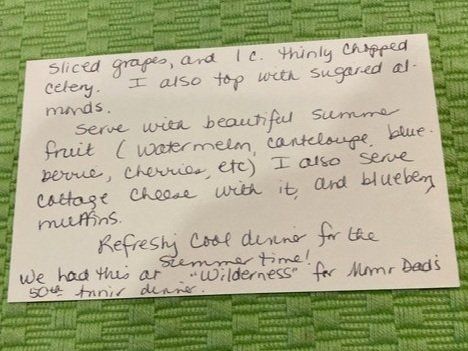 sliced grapes, and 1 c. thinly chopped
celery. I also top with sugared al-
monds.
Serve with beautiful summer
fruit (watermelon, canteloupe, blue-
berrie, cherries, etc) I also serve
cottage cheese with it, and blueberry
muffins.
Refreshing cool dinner for the
summer time!
We had this at "Wilderness" for Mom + Dad's
50th Anniv dinner.